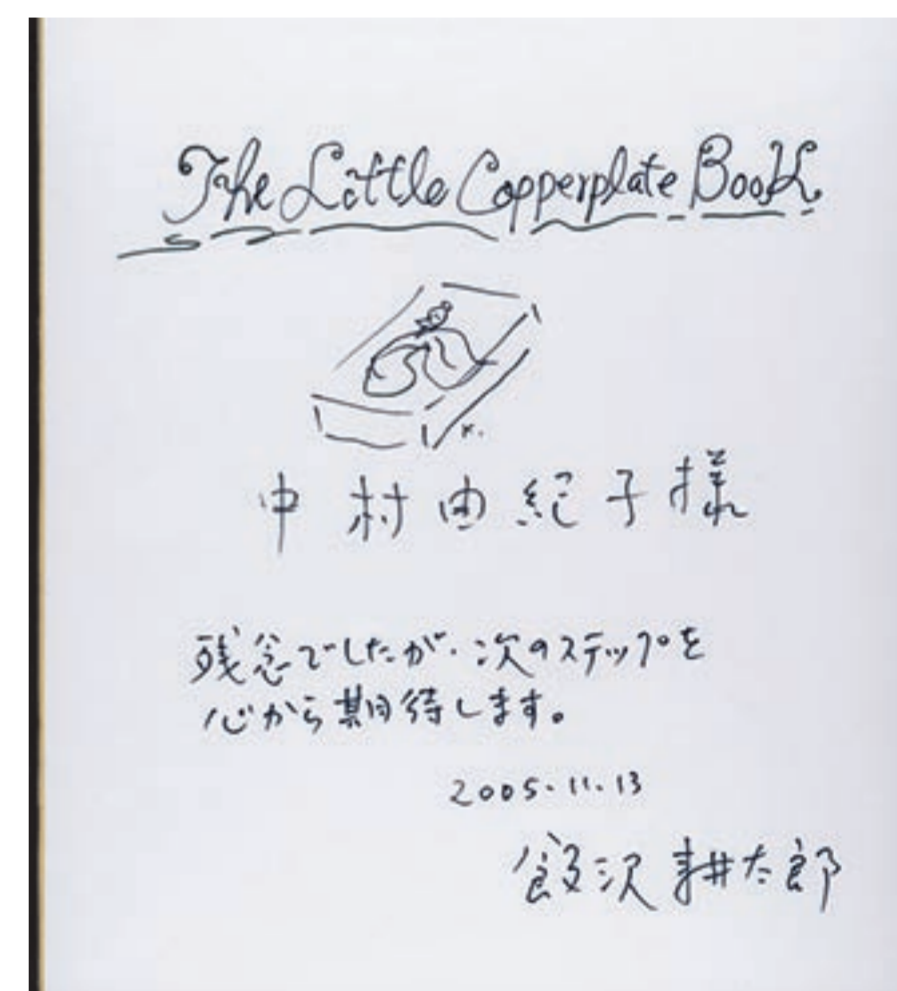 The Little Copperplate Book
K.
中村由紀子様
残念でしたが、次のステップを
心から期待します。
2005.11.13
飯沢耕太郎